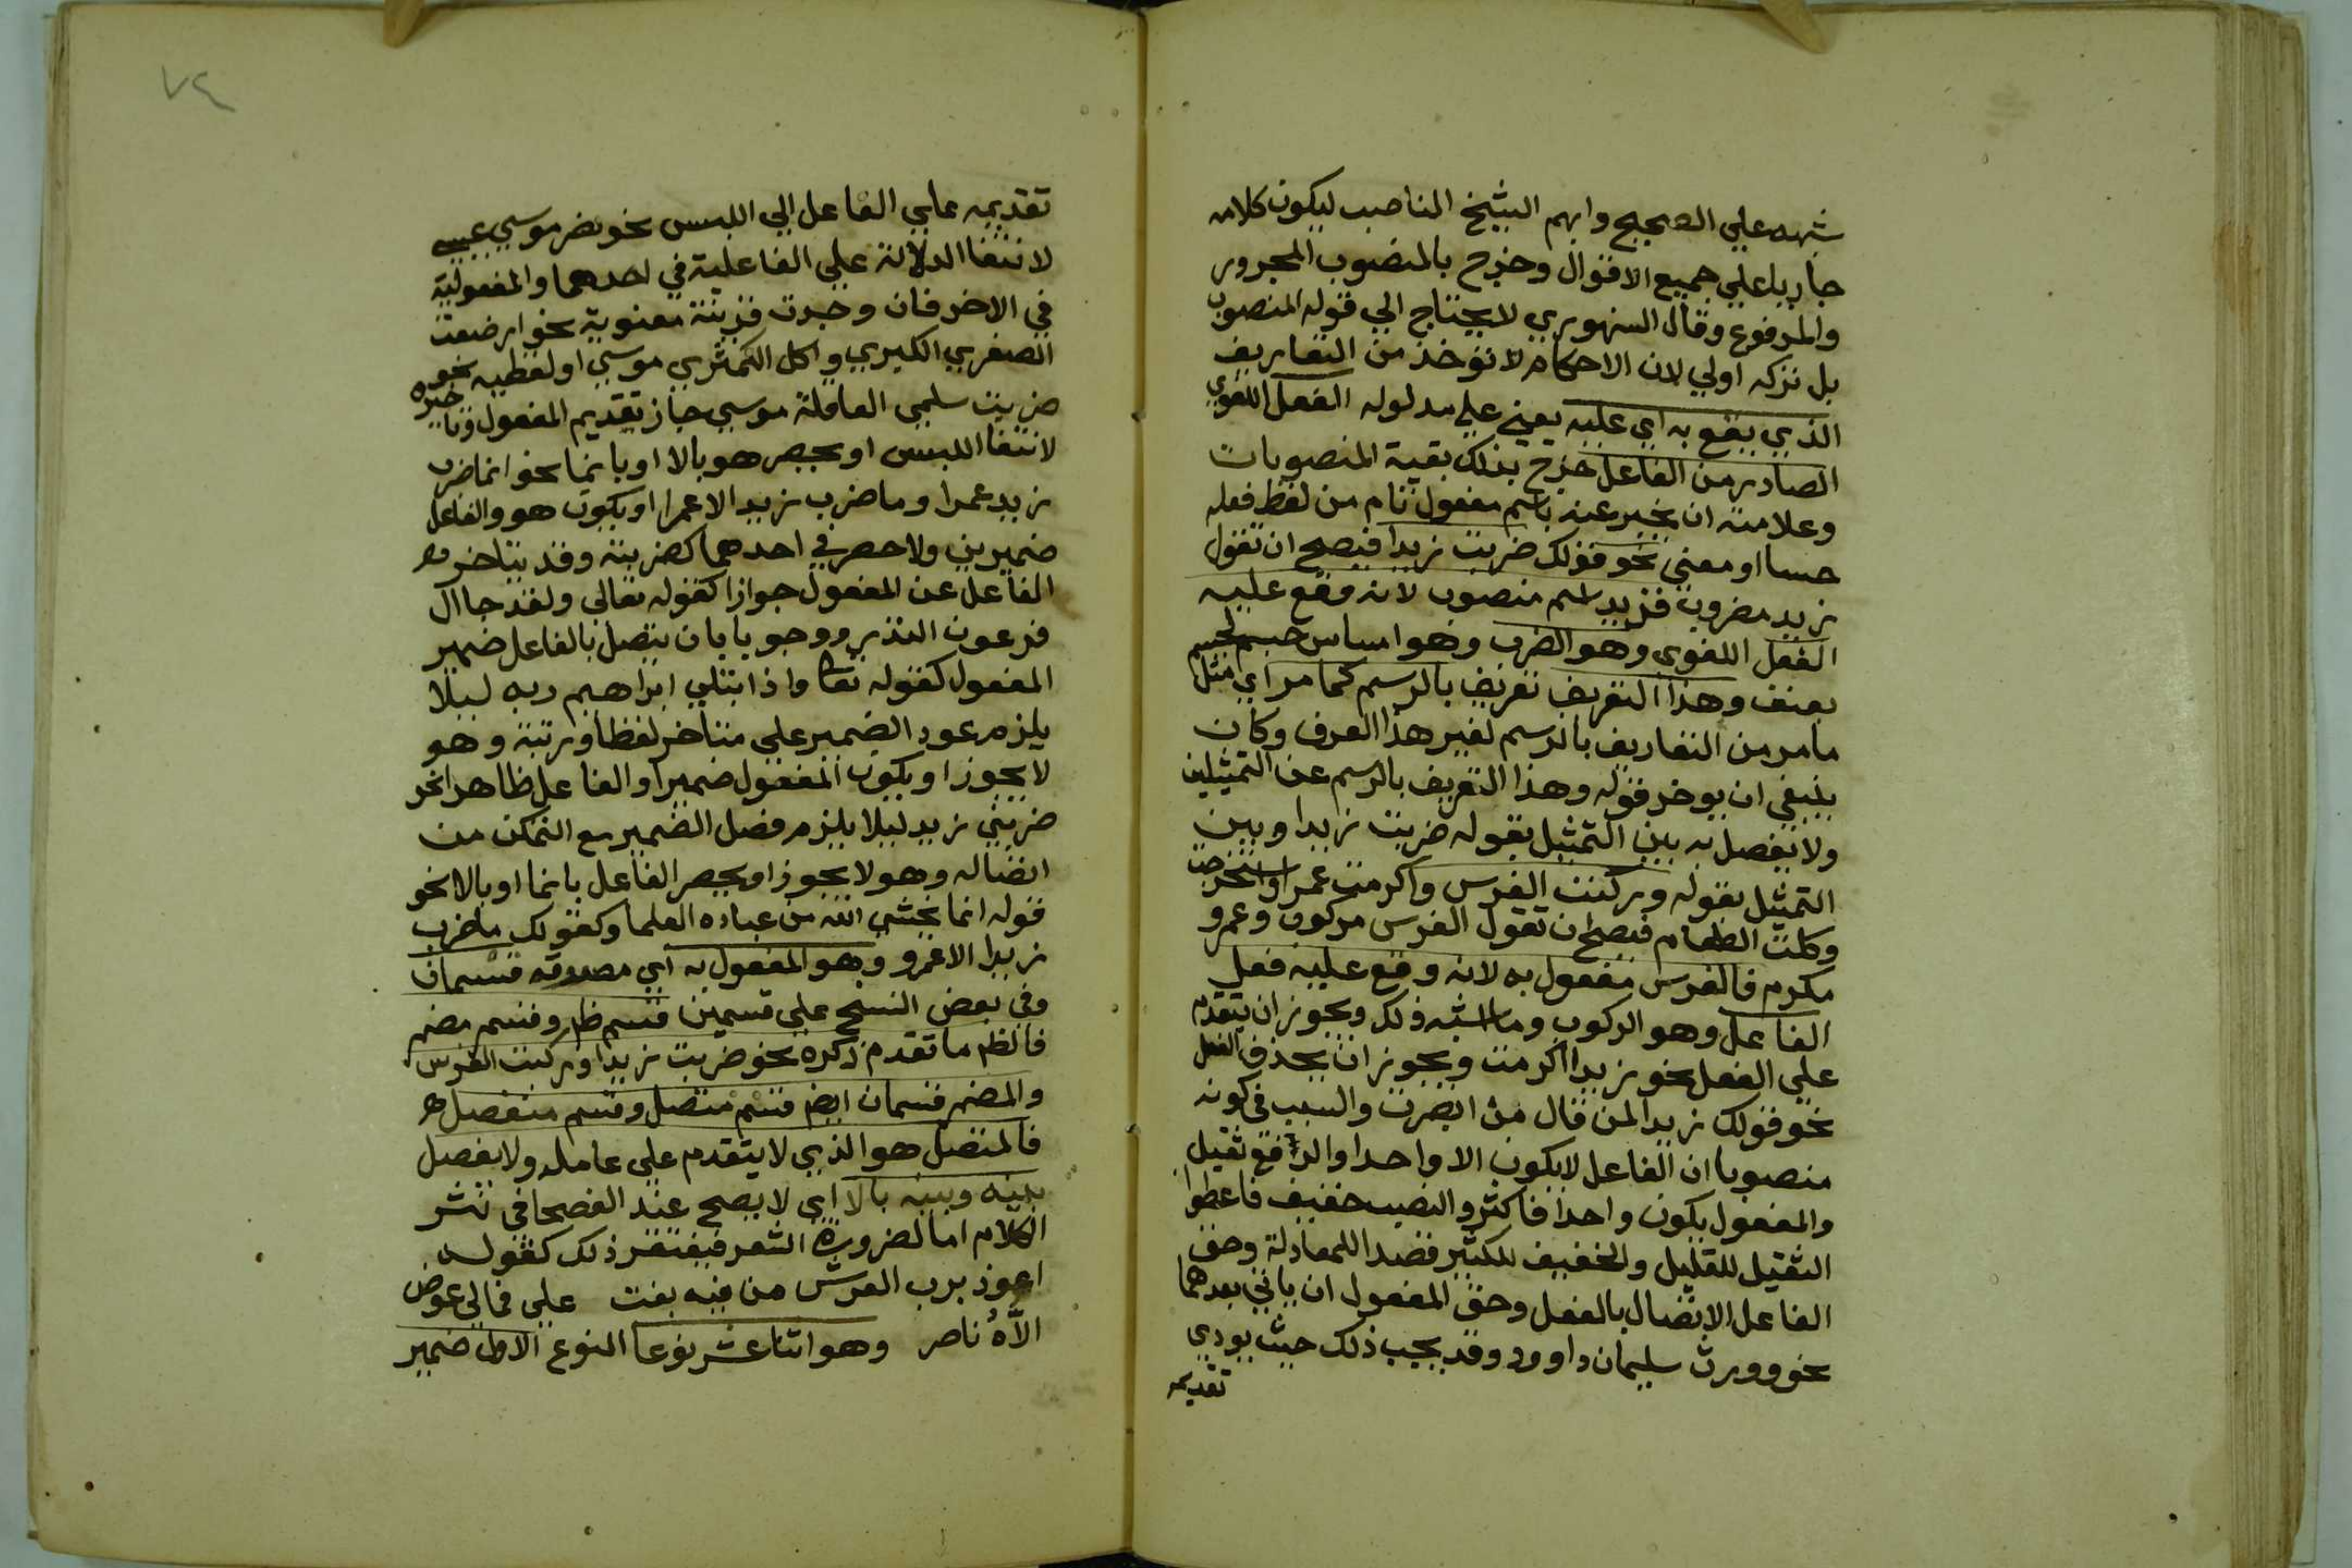 شبهه علي الصحيح وابهم الشيخ الناصب ليكون كلامه
جاريا علي جميع الاقوال وخرج بالمنصوب المجرور
والمرفوع وقال السنهوري لا يحتاج الي قوله المنصوب
بل تركه اولي لان الاحكام لا توخذ من التعاريف
الذي يقع به اي عليه يعني علي مدلوله الفعل اللغوي
الصادر من الفاعل خرج بذلك بقية المنصوبات
وعلامته ان يخبر عنه باسم مفعول تام من لفظ فعله
حسا او معني نحو قولك ضربت زيدا فيصح ان تقول
زيد مضروب فزيد اسم منصوب لانه وقع عليه
الفعل اللغوي وهو الضرب وهو امساس جسم لجسم
بعنف وهذا التعريف تعريف بالرسم كما مر اي مثل
ما مر من التعاريف بالرسم لغير هذا العرف وكان
ينبغي ان يوخر قوله وهذا التعريف بالرسم عن التمثيلين
ولا يفصل به بين التمثيل بقوله ضربت زيدا وبين
التمثيل بقوله وركبت الفرس واكرمت عمرا واستخرجت
وكلت الطعام فيصح ان تقول الفرس مركوب وعمرو
مكرم فالفرس مفعول به لانه وقع عليه فعل
الفاعل وهو الركوب وما اشبه ذلك ويجوز ان يتقدم
علي الفعل نحو زيدا اكرمت ويجوز ان يحذف الفعل
نحو قولك زيدا لمن قال من ابصرت والسبب في كونه
منصوبا ان الفاعل لا يكون الا واحدا والرافع ثقيل
والمفعول يكون واحدا فاكثر والنصب خفيف فاعطوا
الثقيل للقليل والخفيف للكثير قصدا للمعادلة وحق
الفاعل الاتصال بالفعل وحق المفعول ان ياتي بعدهما
نحو وورث سليمان داوود وقد يجب ذلك حيث يودي
تقديمه
٧٤
تقديمه علي الفاعل الي اللبس نحو ضر موسي عيسي
لانتفا الدلالة علي الفاعلية في احدهما والمفعولية
في الاخر فان وجدت قرينة معنوية نحو ارضعت
الصغري الكبري واكل الكمثري موسي او لفظيه نحو
ضربت سلمي العاقلة موسي جاز تقديم المفعول وتاخيره
لانتفا اللبس او يحصر هو بالا او بانما نحو انما ضرب
زيد عمرا وما ضرب زيد الا عمرا او يكون هو والفاعل
ضميرين ولا حصر في احدهما كضربته وقد يتاخر
الفاعل عن المفعول جوازا كقوله تعالي ولقد جا ال
فرعون النذر ووجوبا بان يتصل بالفاعل ضمير
المفعول كقوله تعا واذ ابتلي ابراهيم ربه ليلا
يلزم عود الضمير علي متاخر لفظا ورتبة وهو
لا يجوز او يكون المفعول ضميرا والفاعل ظاهرا نحو
ضربني زيد ليلا يلزم فصل الضمير مع التمكن من
اتصاله وهو لا يجوز او يحصر الفاعل بانما او بالا نحو
قوله انما يخشي الله من عباده العلما وكقولك ما ضرب
زيدا الا عمرو وهو المفعول به اي مصدوقه قسمان
وفي بعض النسخ علي قسمين قسم ظاهر وقسم مضمر
فالظاهر ما تقدم ذكره نحو ضربت زيدا وركبت الفرس
والمضمر قسمان ايض قسم متصل وقسم منفصل
فالمتصل هو الذي لا يتقدم علي عامله ولا يفصل
بينه وبينه بالا اي لا يصح عند الفصحا في نثر
الكلام اما لضرورة الشعر فيغتفر ذلك كقوله
اعوذ برب العرش من فيه بغت علي فمالي عوض
الاه ناصر وهو اثنا عشر نوعا النوع الاول ضمير